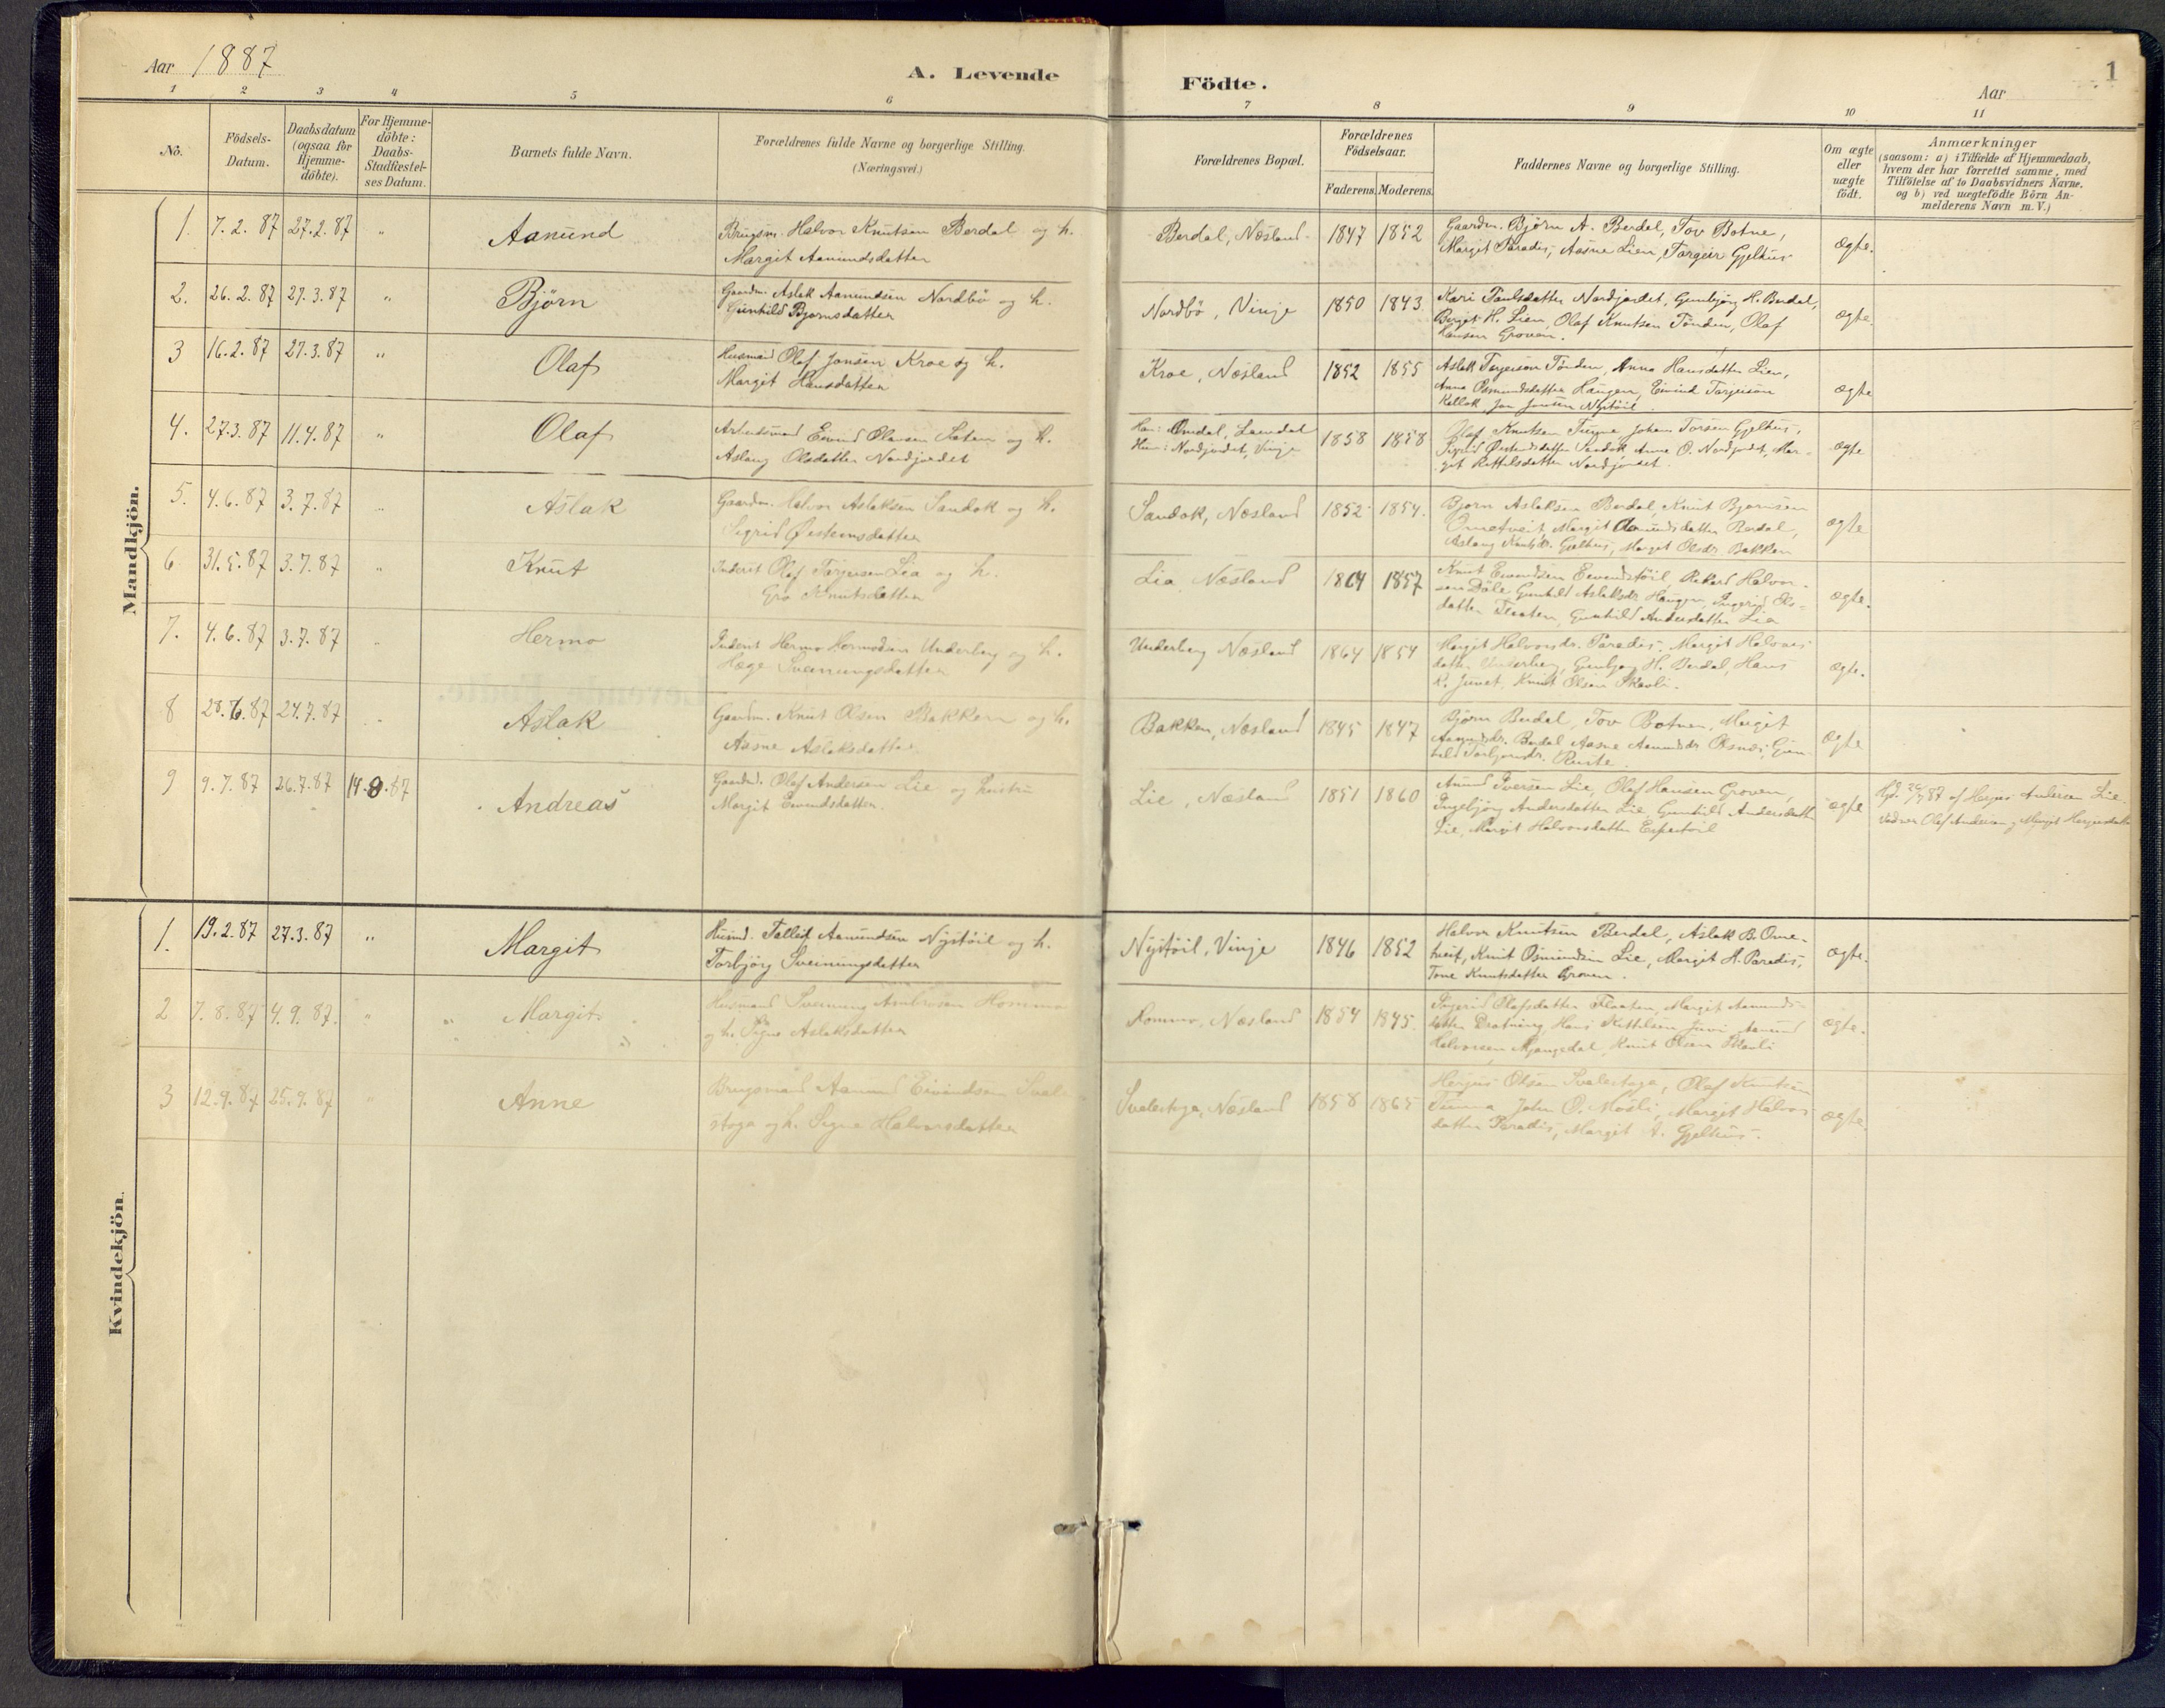 1
Aar 1887
A. Levende Födte.
Aar
1 2 3 4 5 6 7 8 9 10 11
No.
Födsels-
Datum.
Daabsdatum
(ogsaa for
Hjemme-
döbte).
For Hjemme-
döbte:
Daabs-
Stadfæstel-
ses Datum.
Barnets fulde Navn.
Forældrenes fulde Navne og borgerlige Stilling.
(Næringsvei.)
Forældrenes Bopæl.
Forældrenes
Födselsaar.
Faderens. Moderens.
Faddernes Navne og borgerlige Stilling.
Om ægte
eller
uægte
födt.
Anmærkninger
(saasom: a) i Tilfælde af Hjemmedaab,
hvem der har forrettet samme, med
Tilföielse af to Daabsvidners Navne,
og b) ved uægtefödte Börn An-
melderens Navn m. V.)
Mandkjön.
1. 7.2.87 27.2.87 " Aanund
Brugsm. Halvor Knutsen Berdal og h.
Margit Aanundsdatter
Berdal, Næsland 1847 1852
Gaardm. Bjørn A. Berdal, Tov Botne,
Margit Paradis, Aasne Lien, Torgeir Gjelhus
ægte.
2. 26.2.87 27.3.87 " Björn
Gaardm. Aslak Aanundsen Nordbö og h.
Gunhild Bjornsdatter
Nordbö, Vinje 1850 1843
Kari Paulsdatter Nordjordet, Gunbjørg H. Berdal,
Bergit H. Lien, Olaf Knutsen Tönden, Olaf
Hansen Groven.
ægte.
3 16.2.87 27.3.87 " Olaf
Husmand Olaf Jonsen Kroe og h.
Margit Hansdatter
Kroe, Næsland 1852 1855
Aslak Torjerson Tönden, Anna Hansdatter Lien,
Anna Osmundsdatter Haugen, Eivind Torjerson
Jon Jonsen Nystöil.
ægte
4. 27.3.87 11.4.87 " Olaf
Arbeidsmand Eivind Olavsen og h.
Aslaug Olsdatter Nordjordet
Han: Omdal, Laardal
Hun: Nordjordet, Vinje
1858 1858
Olaf Knutsen Johan Torsen Gjelhus,
Sigrid Østensdatter Sandok, Anne O. Nordjordet, Mar-
git Kettilsdatter Nordjordet.
ægte
5. 4.6.87 3.7.87 " Aslak
Gaardm. Halvor Aslaksen Sandok og h.
Sigrid Østensdatter
Sandok, Næsland 1852 1854.
Bjorn Aslaksen Berdal, Knut Bjornsen
Ornetveit, Margit Aanundsdatter Berdal,
Aslaug Gjelhus, Margit Olsdr. Bakken
ægte
6 31.5.87 3.7.87 " Knut
Inderst Olaf Torjersen Lia og h.
Gro Knutsdatter
Lia Næsland 1864 1857
Knut Eivendsen Eivendstöil, Halvor-
sen Döle, Gunhild Aslaksdr. Haugen, Ingerid Ols-
datter Flaaten, Gunhild Andersdatter Lia
ægte.
7. 4.6.87 3.7.87 " Hermo
Inderst Hermo Hermodsen Underberg og h.
Hæge Sveinungsdatter
Underberg Næsland 1864 1854
Margit Halvorsdr. Paradis, Margit Halvors
datter Underberg, Gunbjorg H. Berdal, Hans
K. Knut Olsen Skavli.
ægte.
8 28.6.87 24.7.87 Aslak
Gaardm. Knut Olsen Bakken og h.
Aasne Aslaksdatter
Bakken, Næsland 1845 1847
Björn Berdal, Tov Botnen, Margit
Aanundsdr. Berdal, Aasne Aanundsdr. Gun-
hild Torbjornsdr. Ruste.
ægte
9 9.7.87 26.7.87 14.8.87 Andreas
Gaardm. Olaf Andersen Lie og hustru
Margit Eivendsdatter.
Lie, Næsland 1851 1860
Anund Iversen Lie, Olaf Hansen Groven,
Ingebjörg Andersdatter Lie, Gunhild Andersdatter
Lie, Margit Halvorsdatter Espestöil
ægte
Hjd. 26/7 87 af Herjus Andersen Lie.
Vidner Olaf Andersen og Margit Herjusdatter
Kvindekjön.
1. 19.2.87 27.3.87 " Margit
Husmd. Tallef Aanundsen Nystöil og h.
Torbjörg Sveinungsdatter
Nystöil, Vinje 1846 1852
Halvor Knutsen Berdal, Aslak B. Orne-
tveit, Knut Osmundsen Lie, Margit H. Paradis,
Tone Knutsdatter Groven.
ægte.
2 7.8.87 4.9.87. " Margit
Husmand Sveinung Ambrosen Hommo
og h. Signe Aslaksdatter
Hommo, Næsland 1854 1845.
Ingerid Olafsdatter Flaaten, Margit Aanunds-
datter Hans Kettilsen Juvi, Aanund
Halvorsen Mjaugedal, Knut Olsen Skavli
ægte.
3 12.9.87 25.9.87 " Anne
Brugsmand Aanund Eivindsen Svale-
stoga og h. Signe Halvorsdatter
Svalestoga, Næsland 1858 1865
Herjus Olsen Svalestoga, Olaf Knutsen
John O. Mosli, Margit Halvors
datter Paradis, Margit A. Gjelhus.
ægte.